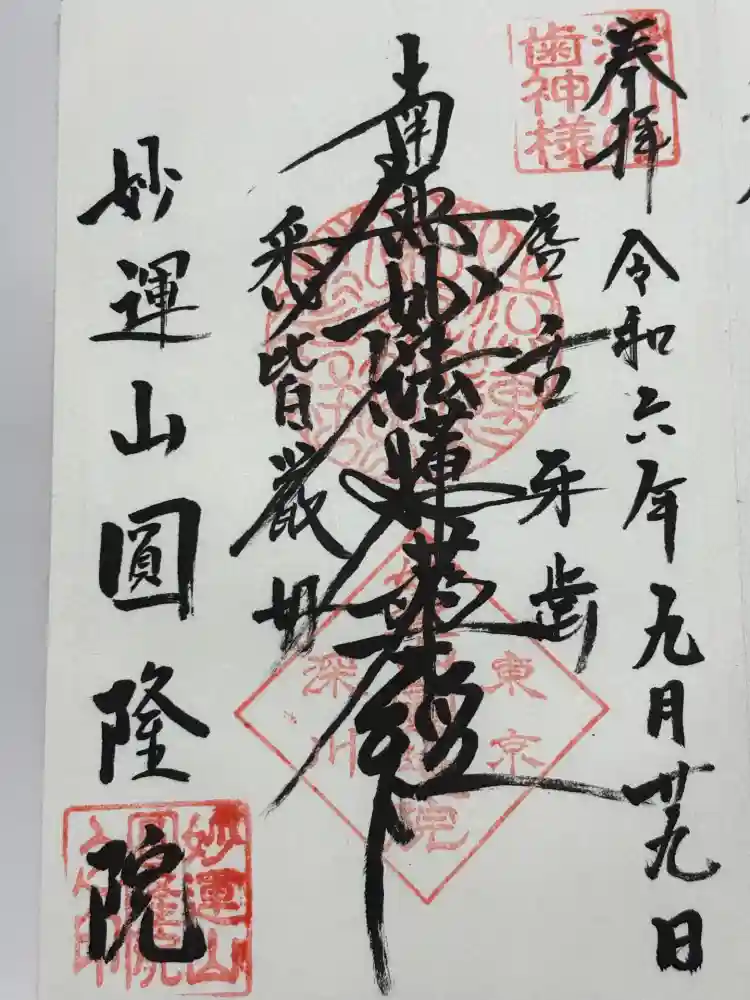 奉拝
令和六年九月廿九日
唇舌牙歯
南無妙法蓮華経
悉皆厳好
妙運山圓隆院
深川の
歯神様
東京
深川
妙運山
圓隆院